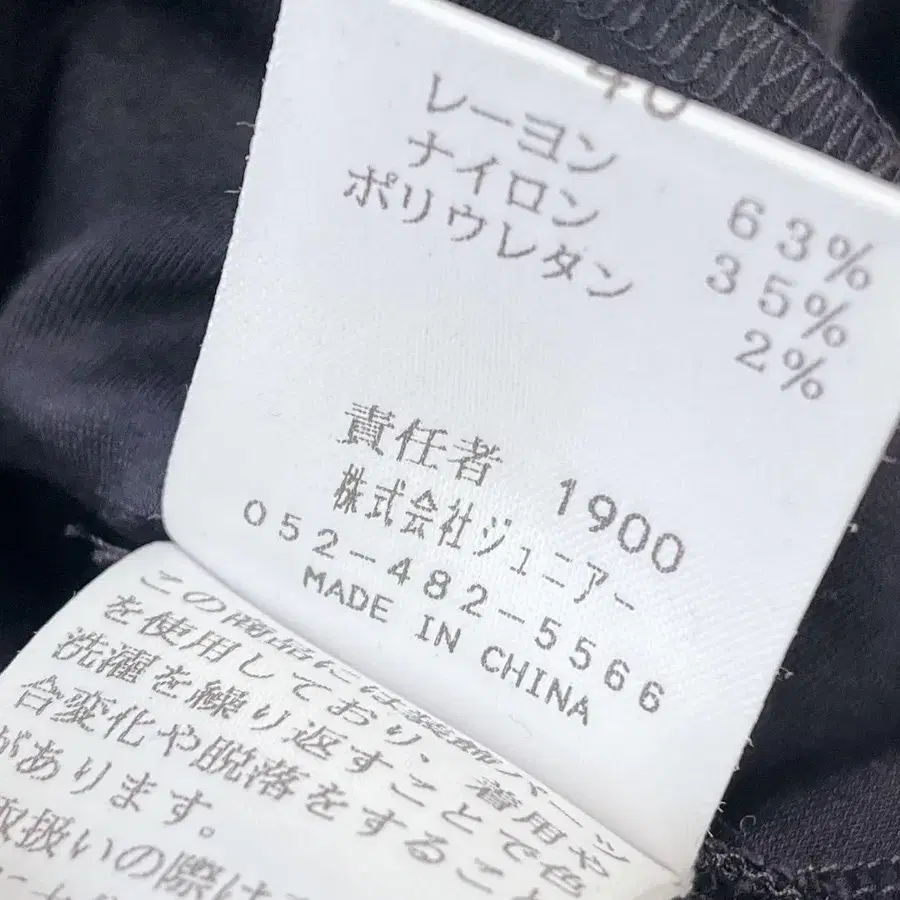 40
レーヨン 63%
ナイロン 35%
ポリウレタン 2%
責任者 1900
株式会社ジュニアー
052-482-5566
MADE IN CHINA
この商品には装飾パーツ
を使用しており、着用や
洗濯を繰り返すことで色
合変化や脱落をするこ
があります。
取扱いの際は